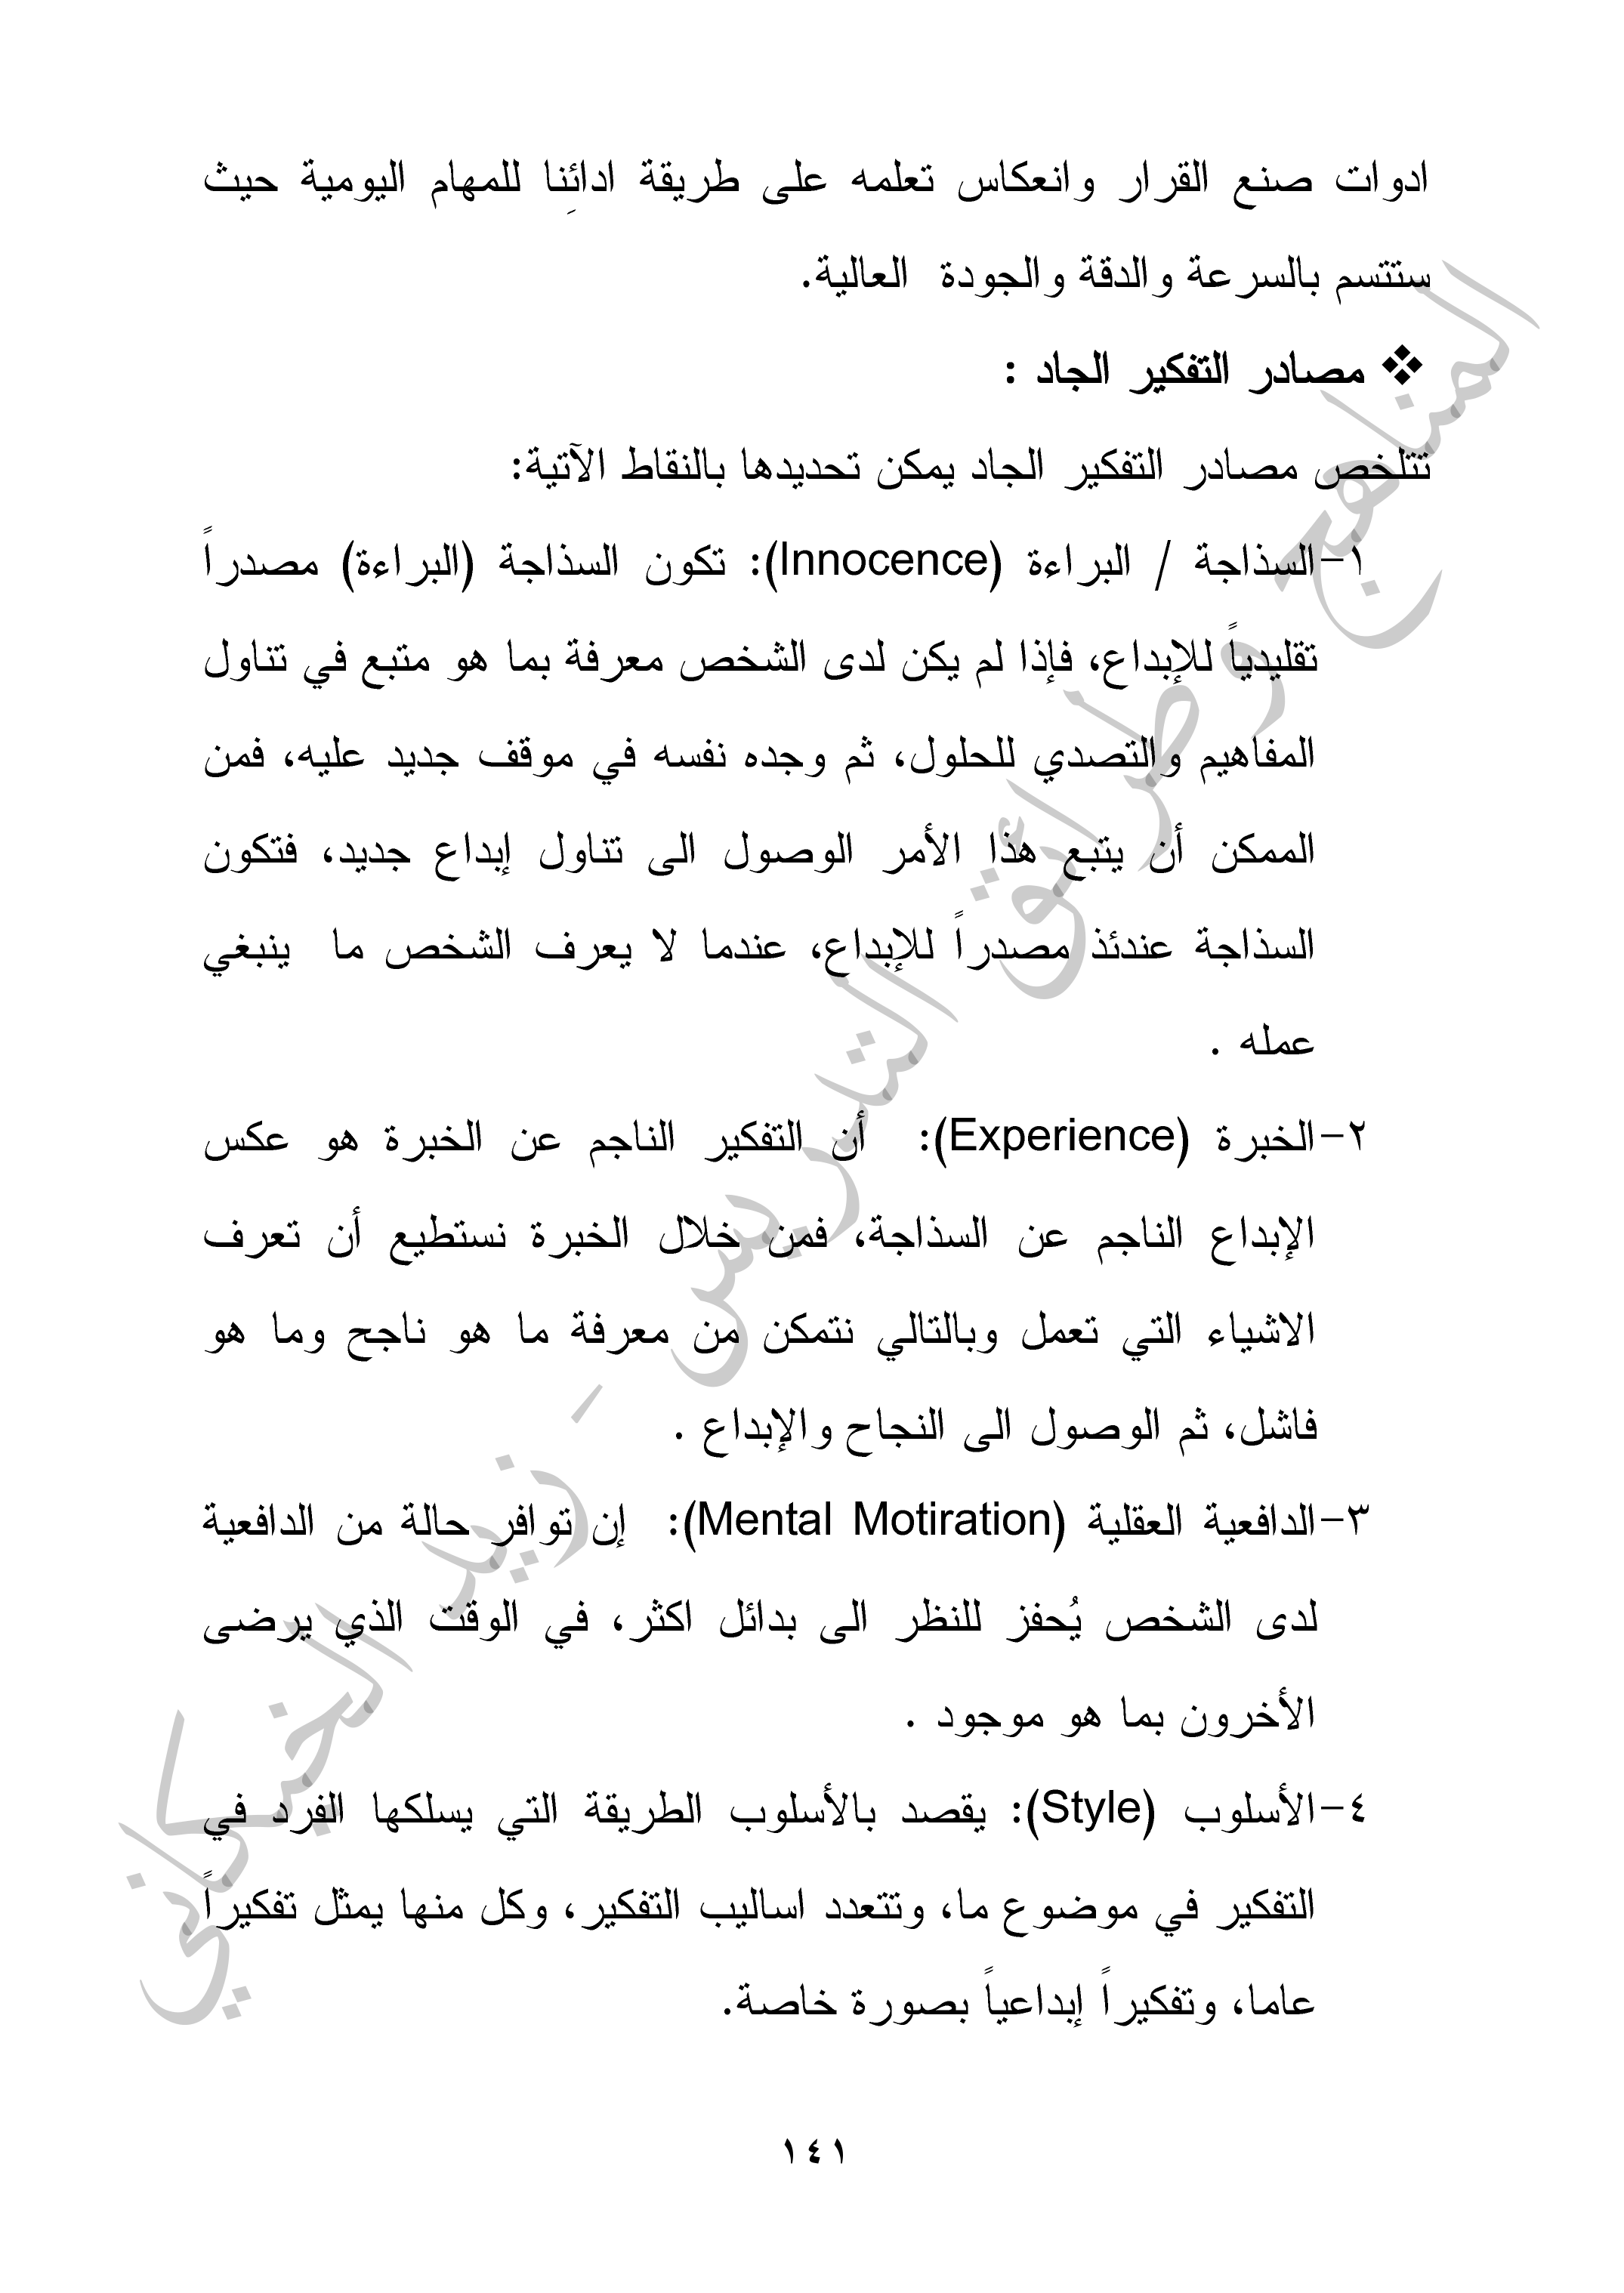 ادوات صنع القرار وانعكاس تعلمه على طريقة ادائِنا للمهام اليومية حيث
ستتسم بالسرعة والدقة والجودة العالية.
❖ مصادر التفكير الجاد :
تتلخص مصادر التفكير الجاد يمكن تحديدها بالنقاط الآتية:
١-السذاجة / البراءة (Innocence): تكون السذاجة (البراءة) مصدراً
تقليدياً للإبداع، فإذا لم يكن لدى الشخص معرفة بما هو متبع في تناول
المفاهيم والتصدي للحلول، ثم وجده نفسه في موقف جديد عليه، فمن
الممكن أن يتبع هذا الأمر الوصول الى تناول إبداع جديد، فتكون
السذاجة عندئذ مصدراً للإبداع، عندما لا يعرف الشخص ما ينبغي
عمله .
٢-الخبرة (Experience): أن التفكير الناجم عن الخبرة هو عكس
الإبداع الناجم عن السذاجة، فمن خلال الخبرة نستطيع أن تعرف
الاشياء التي تعمل وبالتالي نتمكن من معرفة ما هو ناجح وما هو
فاشل، ثم الوصول الى النجاح والإبداع .
٣-الدافعية العقلية (Mental Motiration): إن توافر حالة من الدافعية
لدى الشخص يُحفز للنظر الى بدائل اكثر، في الوقت الذي يرضى
الأخرون بما هو موجود .
٤-الأسلوب (Style): يقصد بالأسلوب الطريقة التي يسلكها الفرد في
التفكير في موضوع ما، وتتعدد اساليب التفكير، وكل منها يمثل تفكيراً
عاما، وتفكيراً إبداعياً بصورة خاصة.
١٤١
المناهج وطرائق التدريس - زيد الخيكاني